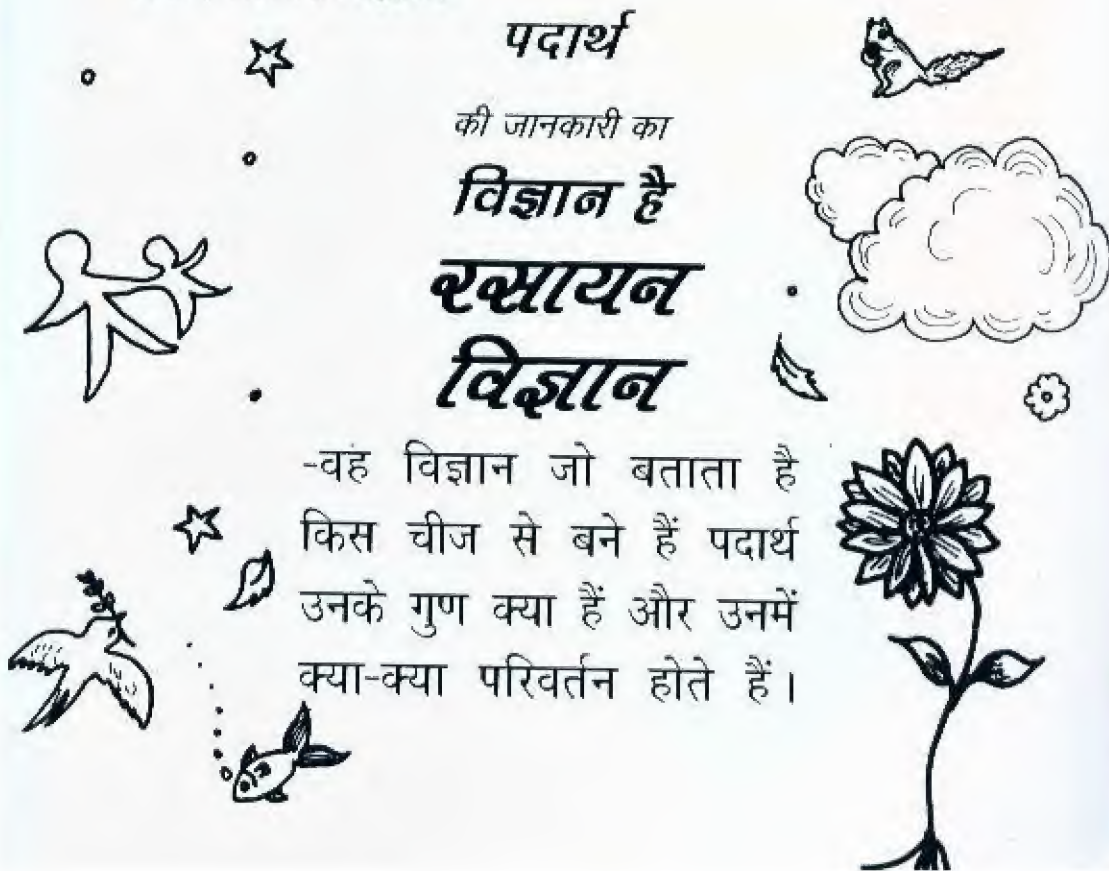 पदार्थ
की जानकारी का
विज्ञान है
रसायन
विज्ञान
-वह विज्ञान जो बताता है
किस चीज से बने हैं पदार्थ
उनके गुण क्या हैं और उनमें
क्या-क्या परिवर्तन होते हैं।